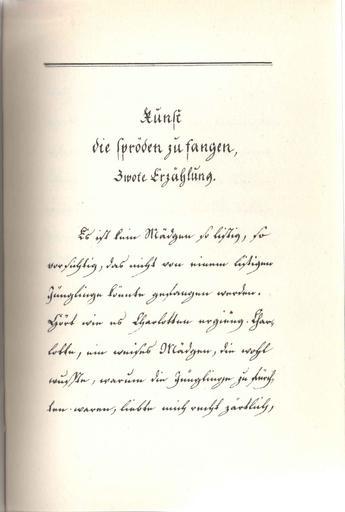 Kunst
die spröden zu fangen,
Zwote Erzählung.
Es ist kein Mädgen so listig, so
vorsichtig, das nicht von einem listigen
Jünglinge könnte gefangen werden.
Hört wie es Charlotten ergieng. Char-
lotte, ein weises Mädgen, die wohl
wusste, warum die Jünglinge zu fürch-
ten waren, liebte mich recht zärtlich,